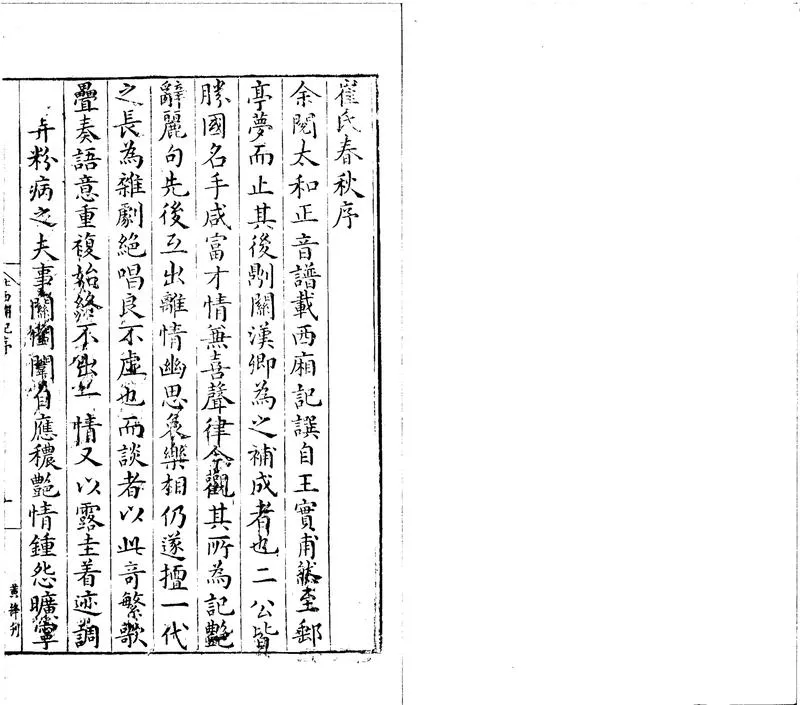 崔氏春秋序
余閱太和正音譜載西廂記譔自王實甫然至郵
亭夢而止其後則關漢卿為之補成者也二公皆
勝國名手咸富才情兼喜聲律今觀其所為記艷
辭麗句先後互出離情幽思哀樂相仍遂擅一代
之長為雜劇絕唱良不虛也而談者以此奇繁歌
疊奏語意重複始終不出一情又以露圭着迹調
弄粉病之夫事關閨閫自應穠艷情鍾怨曠寧
西廂記序
黃鋒刊